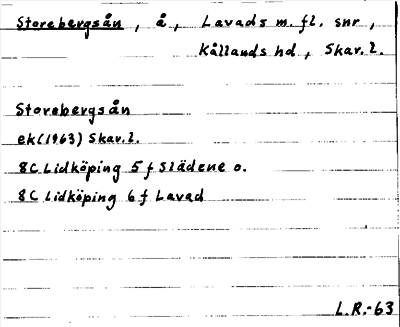 Storebergsån, å, Lavads m.fl. snr,
Kållands hd, Skar.l.
Storebergsån
ek(1963) Skar.l.
8C Lidköping 5 f Slädene o.
8C Lidköping 6 f Lavad
L.R.-63